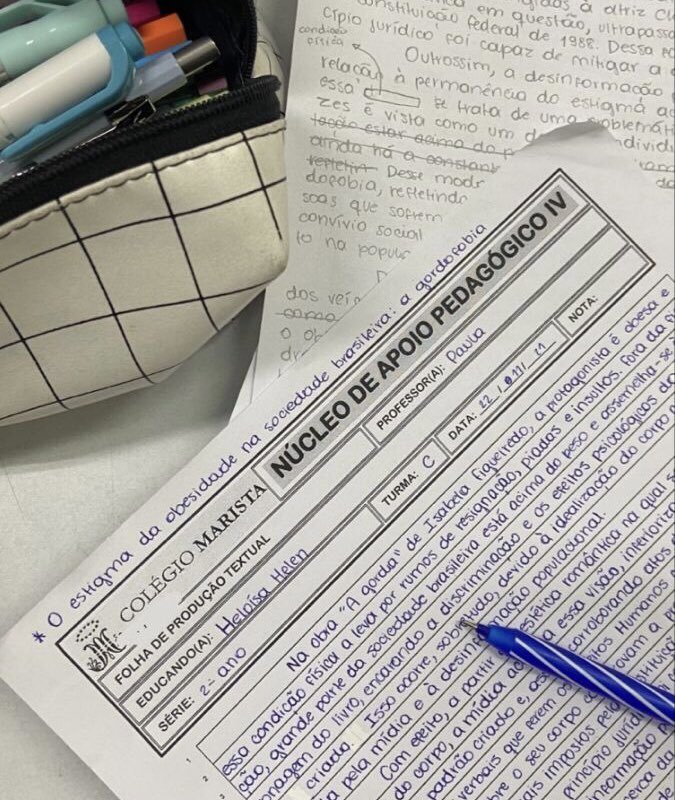 constituição Federal de 1988. Desse
cípio jurídico foi capaz de mitigar a
condição crítica
Outrossim, a desinformação
relação à permanência do estigma
essa se trata de uma problemát
zes é vista como um d individ
tação estar acima do p
ainda há a constant
refletir Desse mod
dofobia, refletindo
soas que sofrem
convívio social
to na popul
dos veíc
como
o ob
* O estigma da obesidade na sociedade brasileira: a gordofobia
COLÉGIO MARISTA
NÚCLEO DE APOIO PEDAGÓGICO IV
FOLHA DE PRODUÇÃO TEXTUAL
PROFESSOR(A): Paula
EDUCANDO(A): Heloísa Helen
SÉRIE: 2º ano
TURMA: C
DATA:
NOTA:
1
Na obra "A gorda" de Isabela Figueiredo, a protagonista é obesa e
2
essa condição física a leva por rumos de resignação, piadas e insultos. Fora da fi
3
ção, grande parte da sociedade brasileira está acima do peso e assemelha-se
nagem do livro, encarando a discriminação e os efeitos psicológicos do
criado. Isso ocorre, sobretudo, devido à idealização do corpo
ia pela mídia e à desin ração populacional.
Com efeito, a partir estética romântica na qual s
do corpo, a mídia ad essa visão, inferioriz
padrão criado e, as corroborando atos
verbais que ferem os eitos Humanos
re o seu corpo
ais impostos pel ovam a
princípio jurí